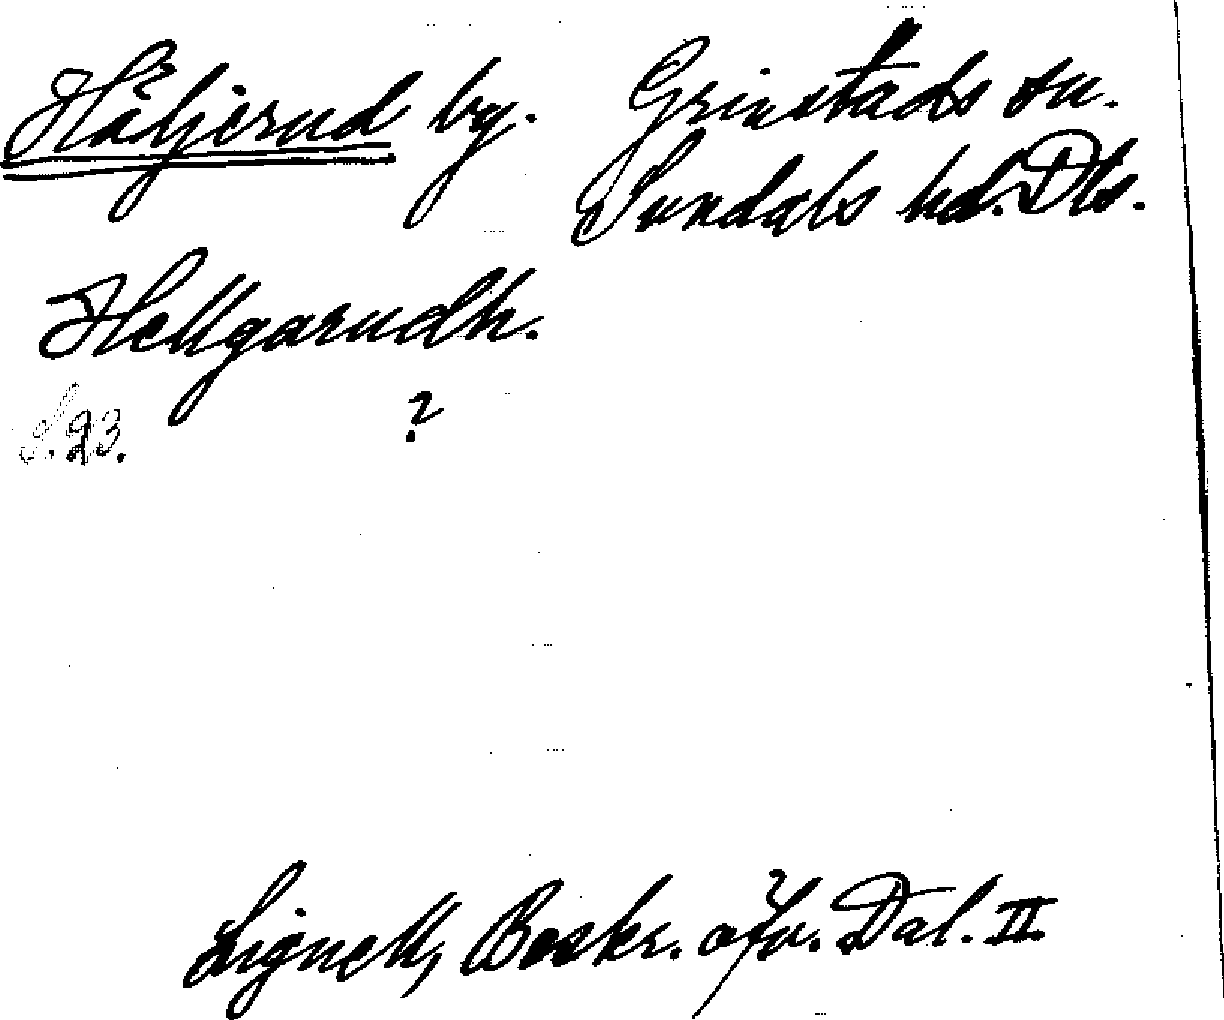 Håljerud by. Grinstads sn.
Sundals hd. Dls.
Hellgarudh.
S. 93. ?
Lignell, Beskr. öfv. Dal. II.